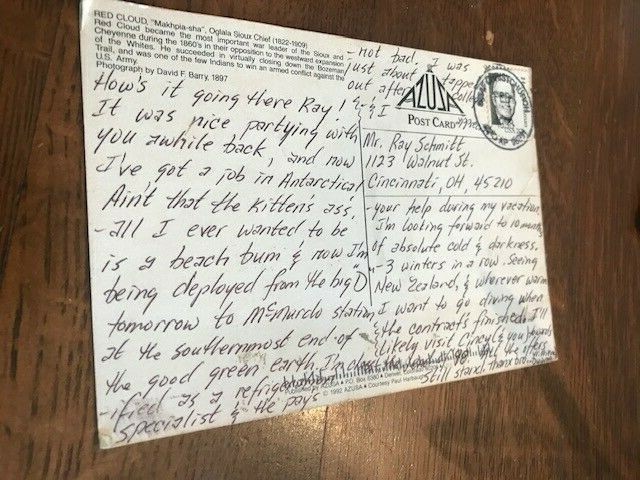 RED CLOUD, "Makhpia-sha", Oglala Sioux Chief (1822-1909)
Red Cloud became the most important war leader of the Sioux and
Cheyenne during the 1860's in their opposition to the westward expansion
of the Whites. He succeeded in virtually closing down the Bozeman
Trail, and was one of few Indians to win an armed conflict against the
U.S. Army.
Photograph by David F. Barry, 1897
How's it going there Ray!
It was nice partying with
you awhile back, and now
I've got a job in Antarctica!
Ain't that the kitten's ass.
-all I ever wanted to be
is a beach bum & now I'm
being deployed from the big "D"
tomorrow to McMurdo station
at the southernmost end of
the good green earth. I'm
-ified as a refrigeration
specialist & the pays
-not bad. I was
just about tapped
out after
& I
AZUSA
POST CARD
Mr. Ray Schmitt
1123 Walnut St.
Cincinnati, OH, 45210
-your help during my vacation
I'm looking forward to 10 months
of absolute cold & darkness.
-3 winters in a row. Seeing
New Zealand, & wherever warm
I want to go diving when
the contract's finished. I'll
likely visit Cincy & you
Still staxd, thanx bro
Published by AZUSA • P.O. Box • Denver
© 1992 AZUSA • Courtesy Paul